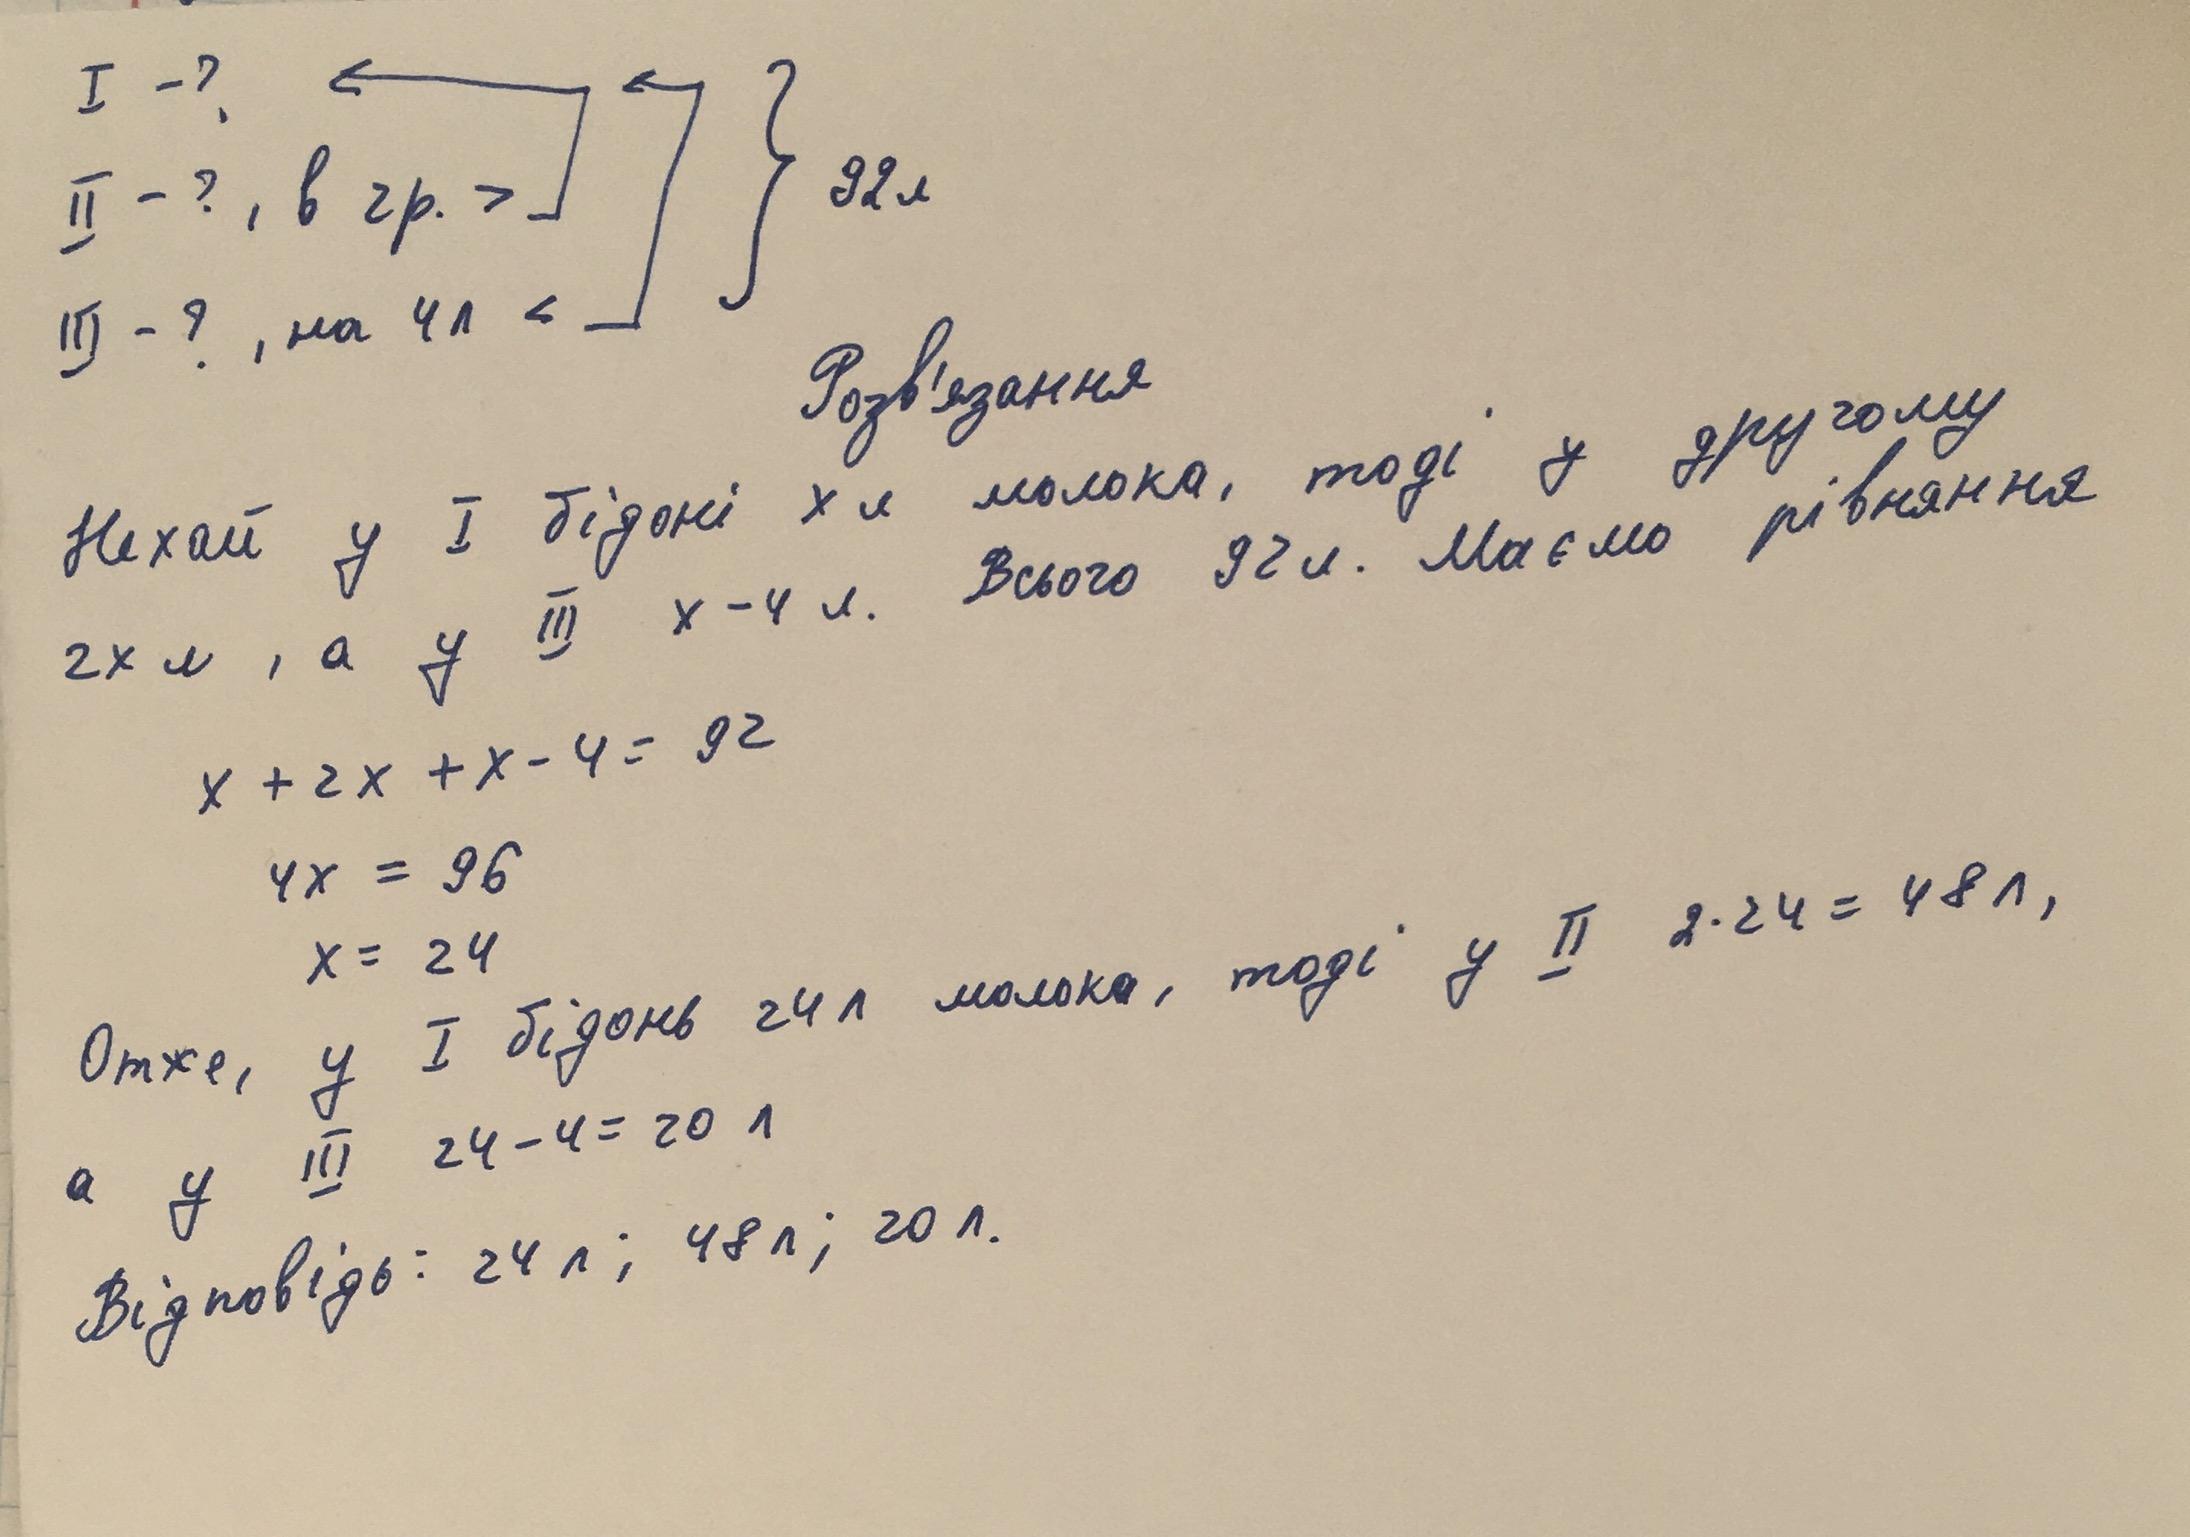 I - ?
II - ?, в 2р. >
92л
III - ?, на 4л <
Розв'язання
Нехай у I бідоні х л молока, тоді у другому
2х л, а у III х-4 л. Всього 92л. Маємо рівняння
х + 2х + х - 4 = 92
4х = 96
х = 24
Отже, у I бідонь 24л молока, тоді у II 2·24 = 48л,
а у III 24-4 = 20 л
Відповідь: 24л; 48л; 20л.